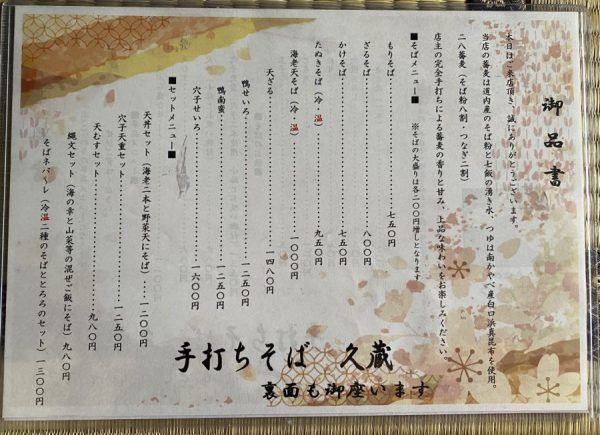 御品書
本日はご来店頂き、誠にありがとうございます。
当店の蕎麦は道内産のそば粉と七飯の湧き水、つゆは南かやべ産白口浜真昆布を使用。
二八蕎麦（そば粉八割・つなぎ二割）
店主の完全手打ちによる蕎麦の香りと甘み、上品な味わいをお楽しみください。
■そばメニュー■ ※そばの大盛りは各二〇〇円増しとなります
もりそば……七五〇円
ざるそば……八〇〇円
かけそば……七五〇円
たぬきそば（冷・温）……九五〇円
海老天そば（冷・温）……一〇〇〇円
天ざる……一四八〇円
鴨せいろ……一二五〇円
鴨南蛮……一二五〇円
穴子せいろ……一六〇〇円
■セットメニュー■
天丼セット（海老二本と野菜天にそば）…一二〇〇円
穴子天重セット……一二五〇円
天むすセット……九八〇円
縄文セット（海の幸と山菜等の混ぜご飯にそば）九八〇円
そばネバ～レ（冷温二種のそばととろろのセット）一三〇〇円
手打ちそば 久蔵
裏面も御座います